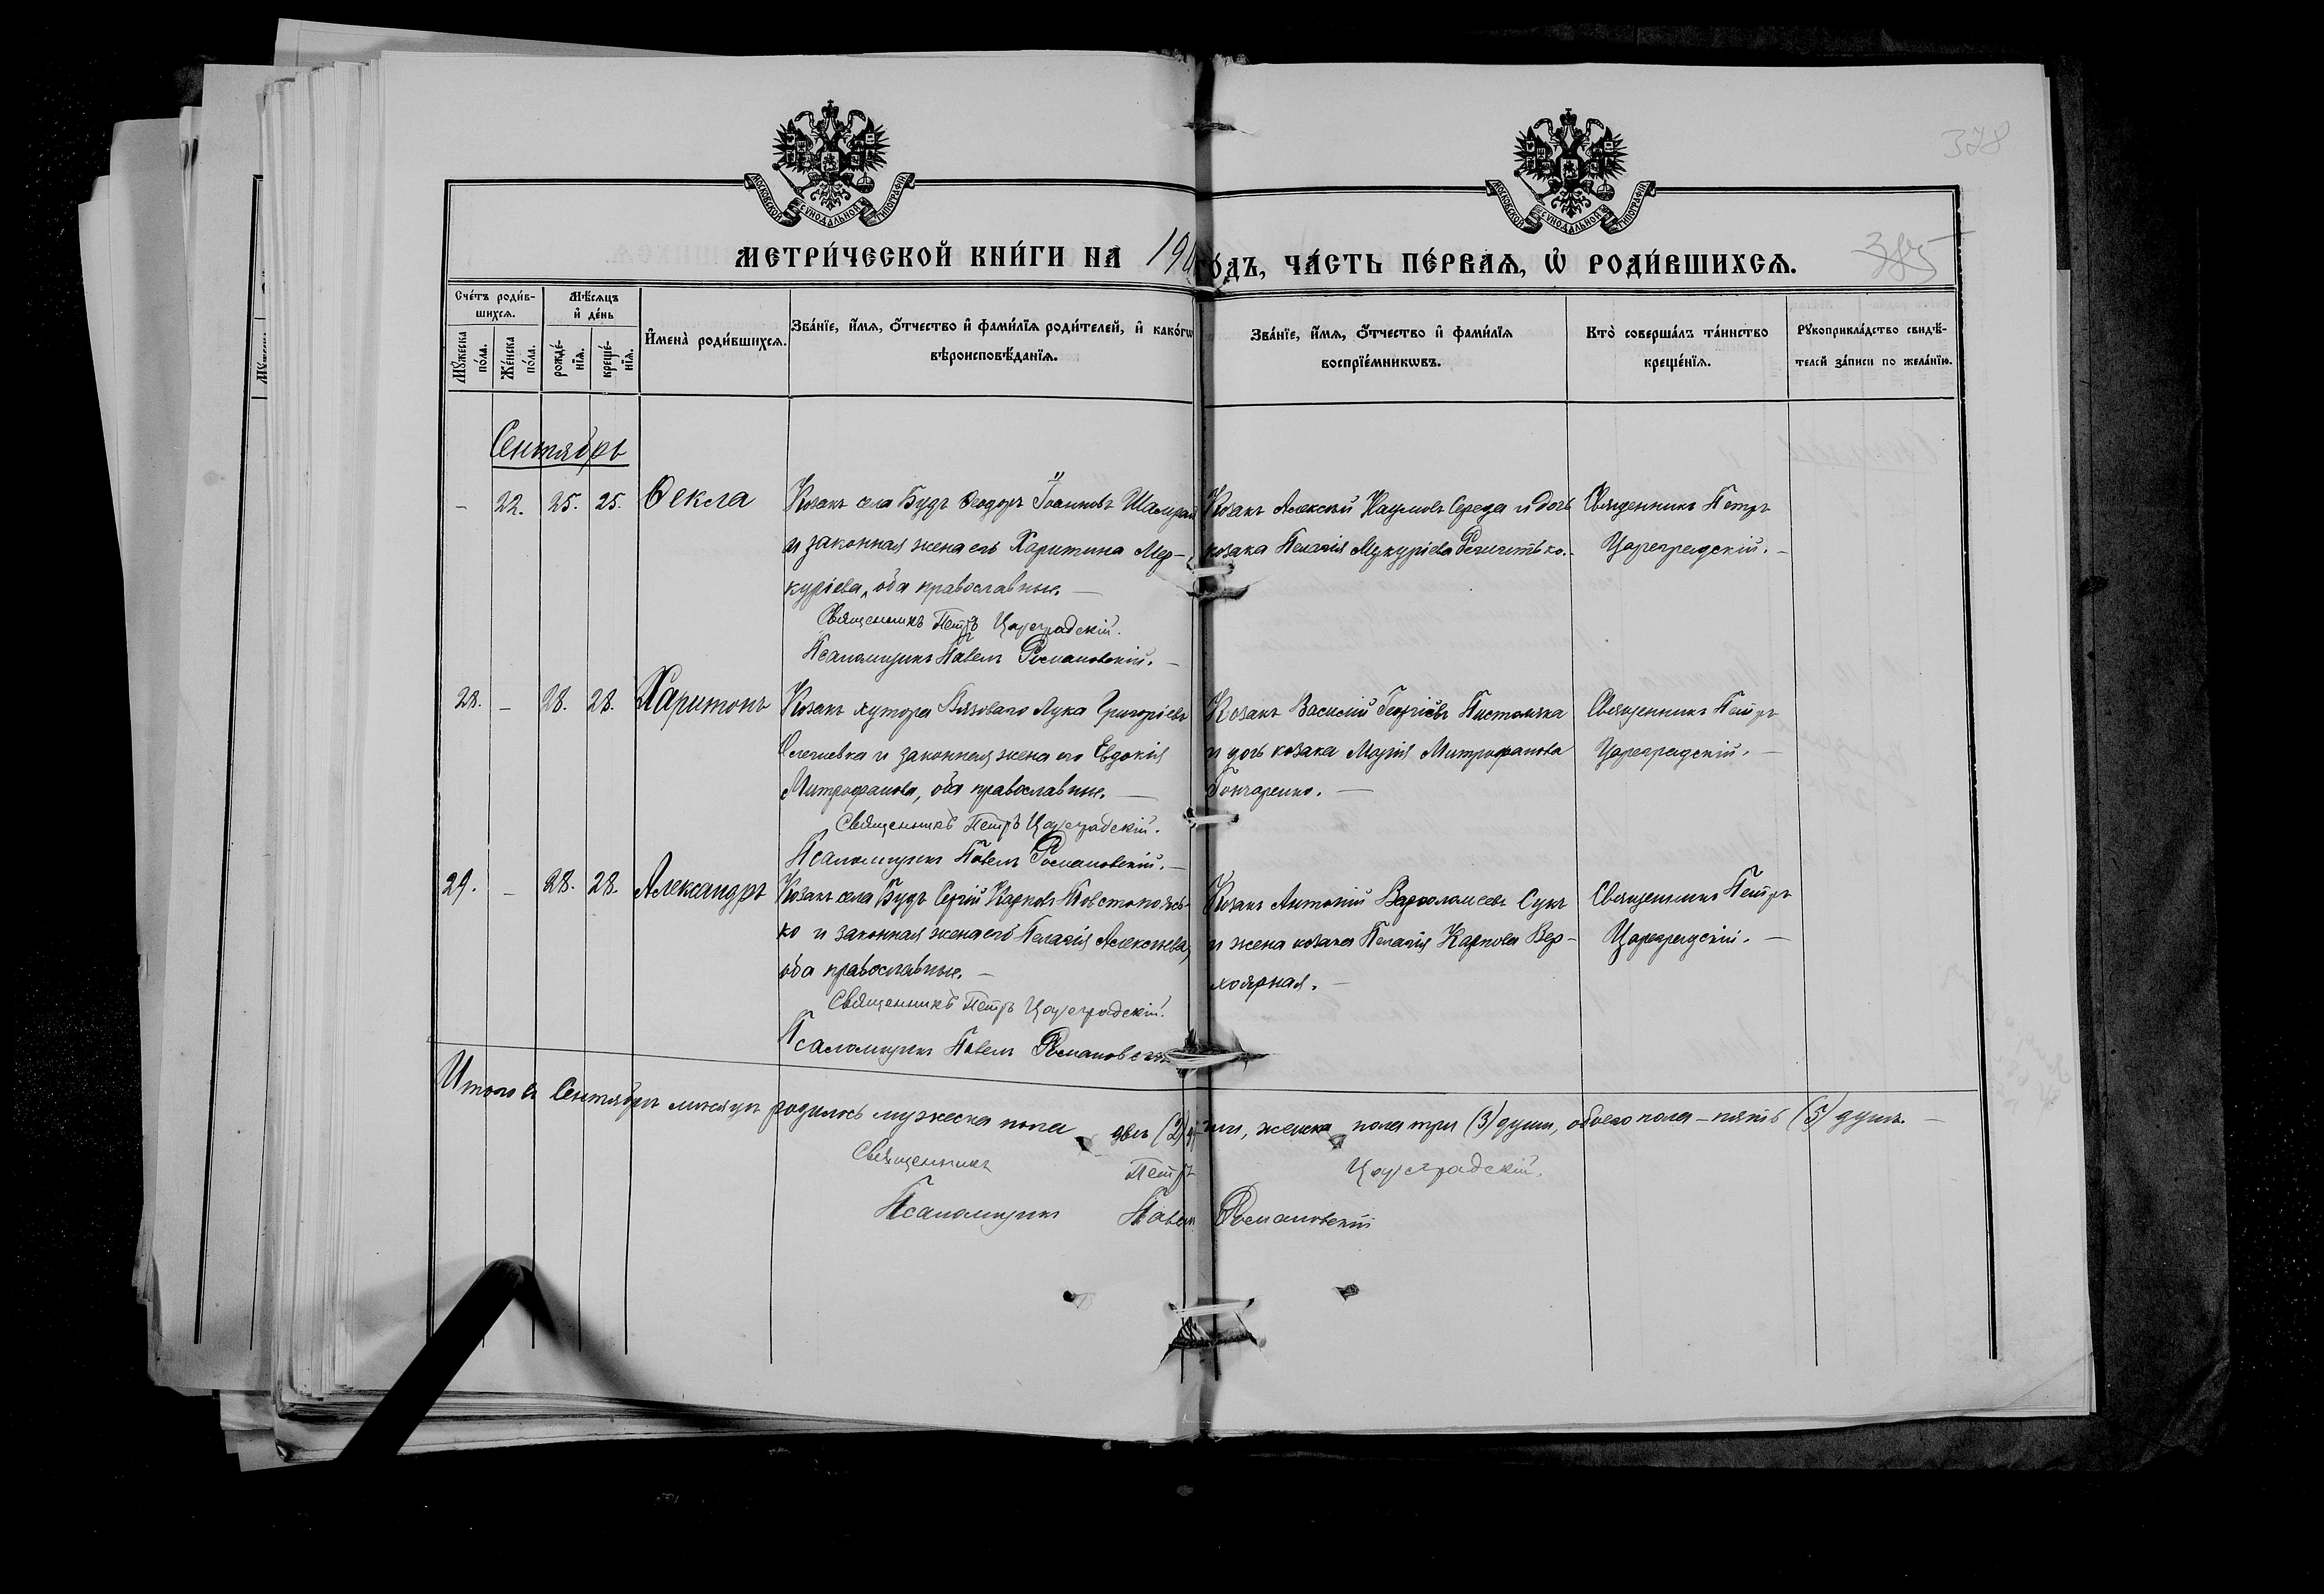 378
МОСКОВСКОЙ СѴНОДАЛЬНОЙ ТИПОГРАФІИ
МОСКОВСКОЙ СѴНОДАЛЬНОЙ ТИПОГРАФІИ
МЕТРИ́ЧЕСКОЙ КНИ́ГИ НА 19
О́ДЪ, ЧА́СТЬ ПЕ́РВАѦ, Ѡ҆ РОДИ́ВШИХСѦ.
385
Сче́тъ роди́в-
шихсѧ.
Мꙋ́жеска по́ла.
Же́нска по́ла.
Мѣ́сѧцъ
и҆ де́нь
рожде́-нїѧ.
креще́-нїѧ.
И҆мена̀ роди́вшихсѧ.
Зва́нїе, и҆́мѧ, ѻ҆́тчество и҆ фами́лїѧ роди́телей, и҆ како́гѡ
вѣроисповѣ́данїѧ.
Зва́нїе, и҆́мѧ, ѻ҆́тчество и҆ фами́лїѧ
воспрїе́мникѡвъ.
Кто̀ соверша́лъ та́инство
креще́нїѧ.
Рꙋкоприкла́дство свидѣ́-
телей за́писи по жела́нїю.
Сентябрь
– 22. 25. 25. Ѳекла
Козакъ села Будъ Ѳеодоръ Іоанновъ Шамрай
и законная жена его Харитина Мер-
куріева, оба православные. —
Священникъ Петръ Цареградскій.
Псаломщикъ Павелъ Романовскій. —
Козакъ Алексѣй Наумовъ Середа и дочь
козака Пелагія Меркуріева
Священникъ Петръ
Цареградскій. —
28. – 28. 28. Харитонъ
Козакъ хутора Вязоваго Лука Григоріевъ
и законная жена его Евдокія
Митрофанова, оба православные. —
Священникъ Петръ Цареградскій.
Псаломщикъ Павелъ Романовскій. —
Козакъ Василій Георгіевъ
и дочь козака Марія Митрофанова
Гончаренко. —
Священникъ Петръ
Цареградскій. —
29. – 28. 28. Александръ
Козакъ села Будъ Сергій Карповъ Товстопясь-
ко и законная жена его Пелагія Алексѣева,
оба православные. —
Священникъ Петръ Цареградскій.
Псаломщикъ Павелъ Романовскій
Козакъ Антоній Варѳоломеевъ Сукъ
и жена козака Пелагія Карпова Вер-
хоярная. —
Священникъ Петръ
Цареградскій. —
Итого въ Сентябрѣ мѣсяцѣ родилось мужеска пола двѣ (2) души, женска пола три (3) души, обоего пола – пять (5) душъ. —
Священникъ Петръ Цареградскій.
Псаломщикъ Павелъ Романовскій